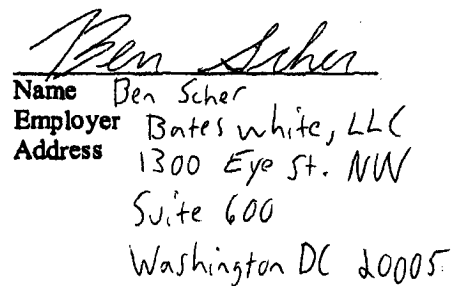 Ben Scher
Name Ben Scher
Employer Bates White, LLC
Address 1300 Eye St. NW
Suite 600
Washington DC 20005